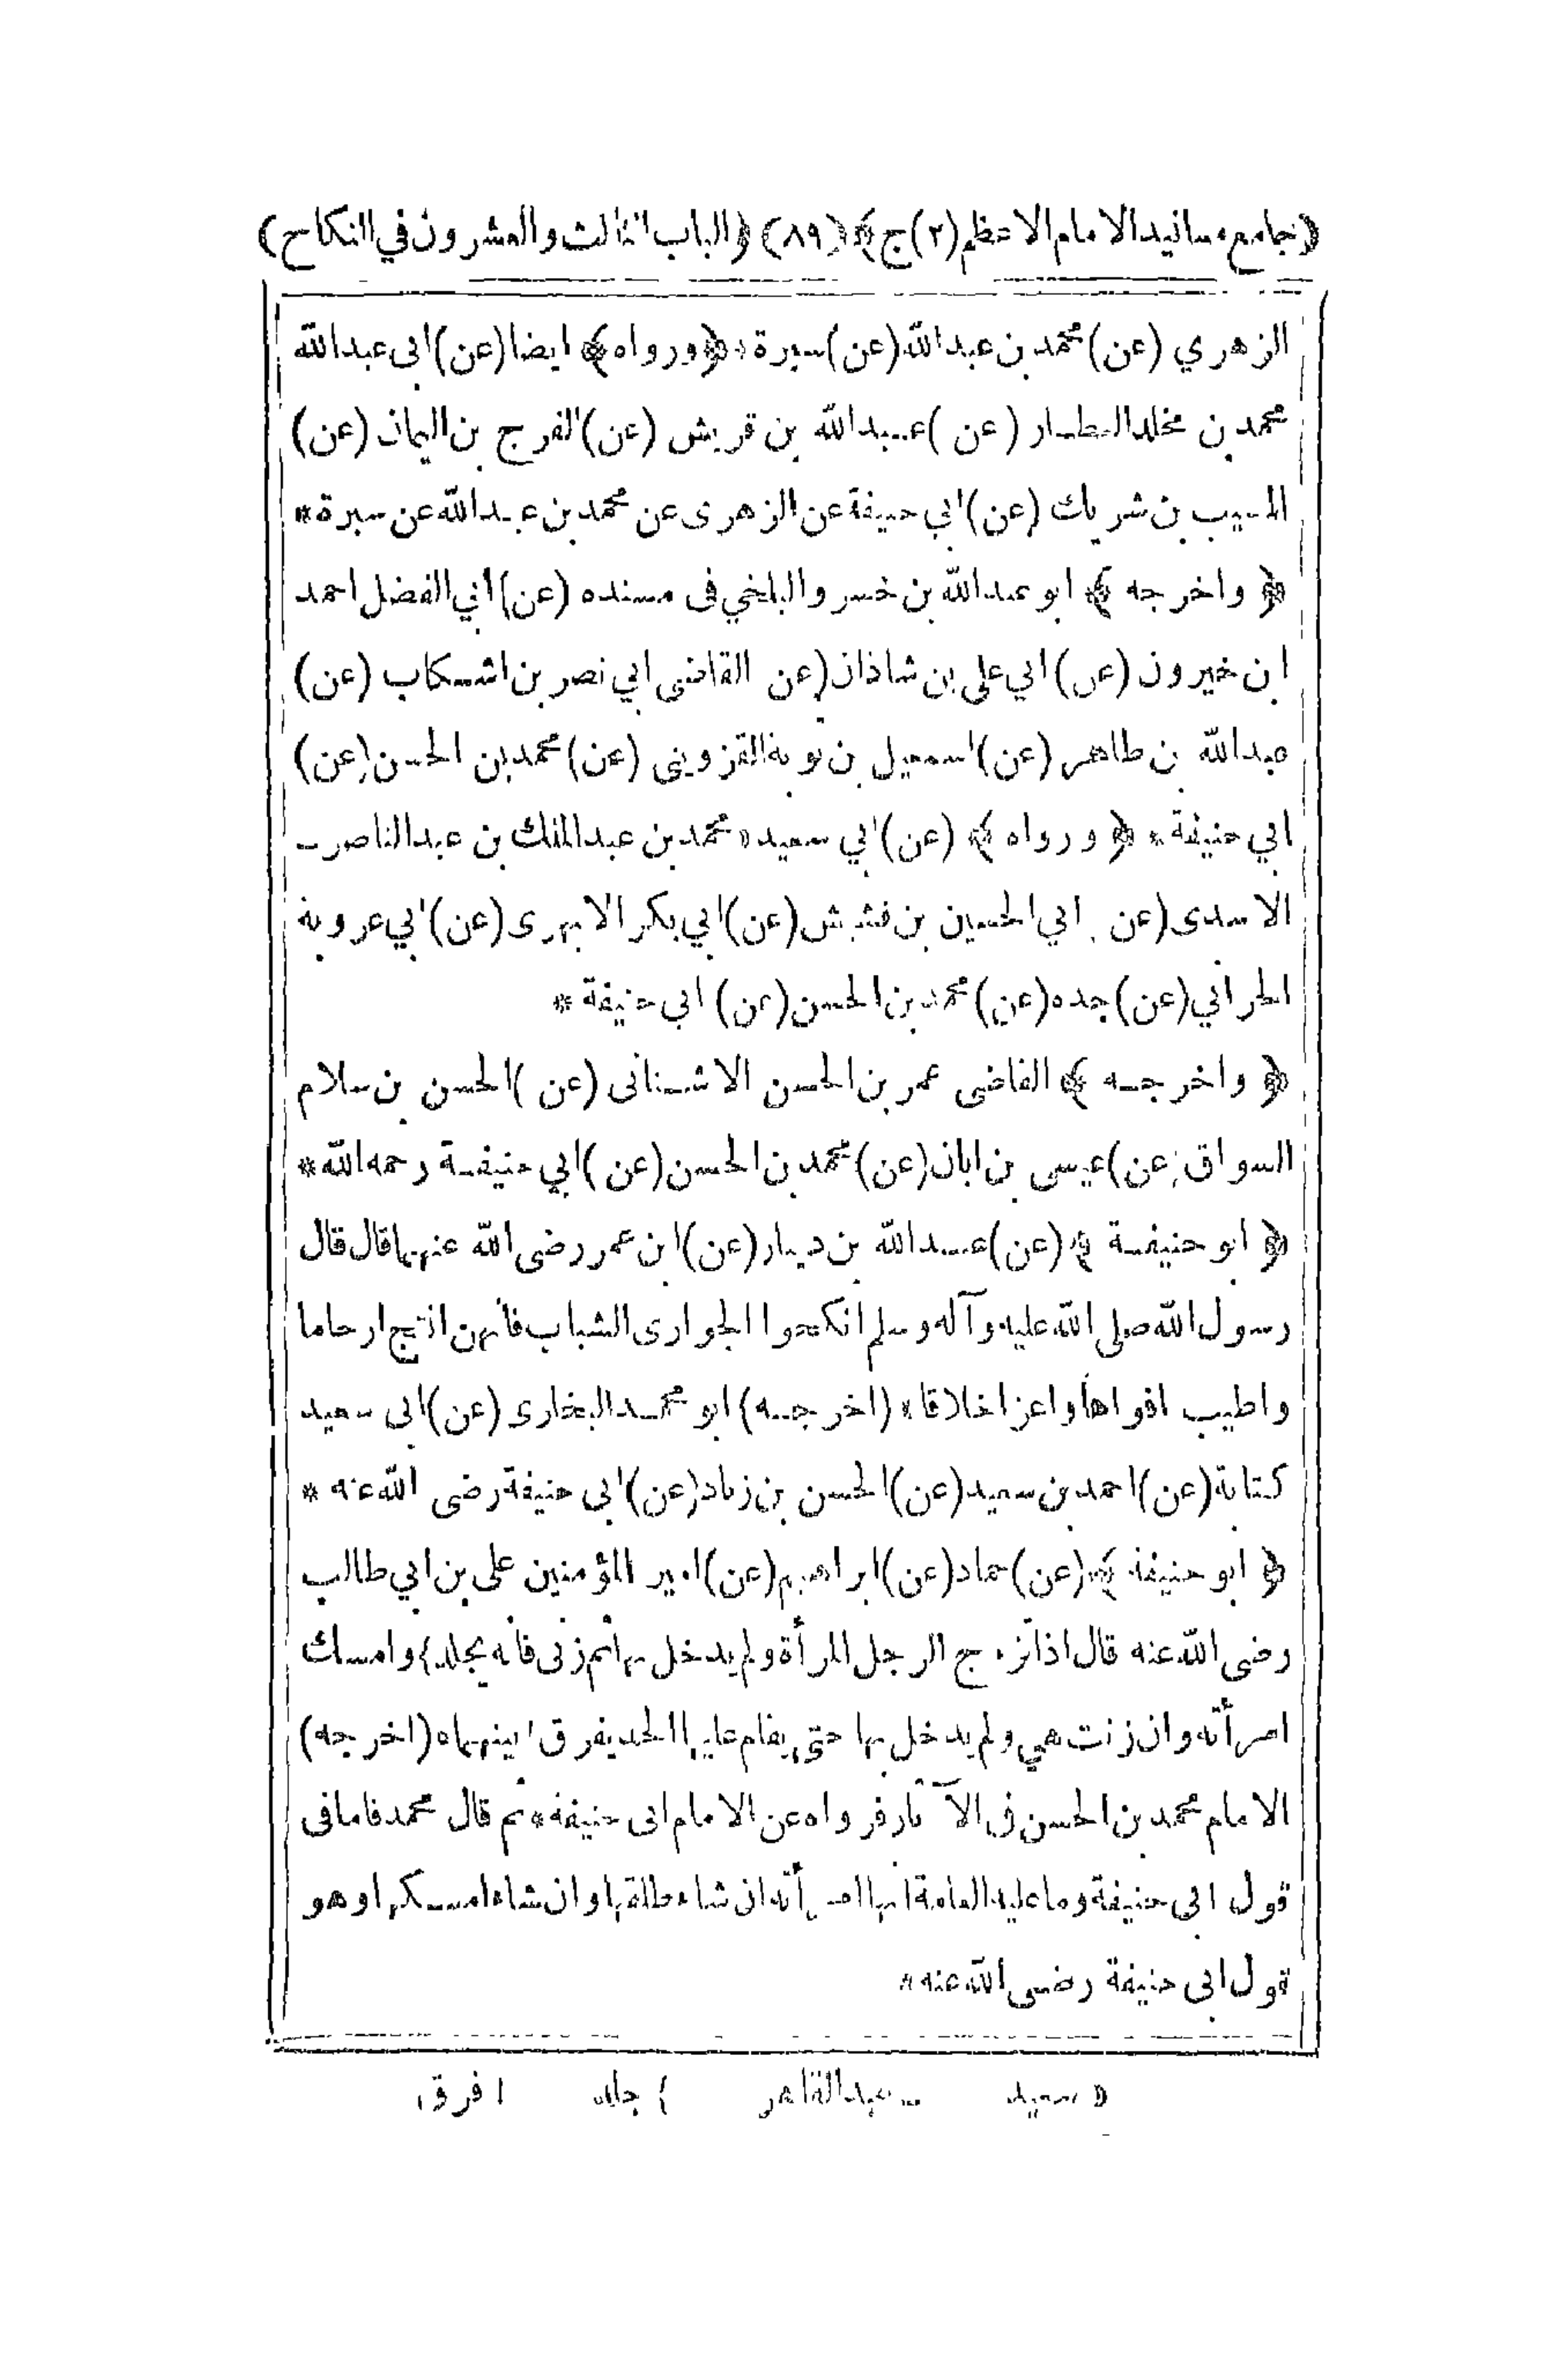 ﴿جامع مسانيد الامام الاعظم (٢) ج﴾ (٨٩) ﴿الباب الثالث والعشرون في النكاح﴾
الزهري (عن) محمد بن عبدالله (عن) سبرة * ﴿ورواه﴾ ايضا (عن) ابى عبدالله
محمد بن مخلد العطار (عن) عبدالله بن قريش (عن) الفرج بن اليمان (عن)
المسيب بن شريك (عن) ابي حنيفة عن الزهرى عن محمد بن عبدالله عن سبرة *
﴿واخرجه﴾ ابو عبدالله بن خسرو البلخي فى مسنده (عن) ابي الفضل احمد
ابن خيرون (عن) ابي على بن شاذان (عن القاضى ابي نصر بن اشكاب (عن)
عبدالله بن طاهر (عن) اسمعيل بن توبة القزوينى (عن) محمد بن الحسن (عن)
ابي حنيفة * ﴿ورواه﴾ (عن) ابي سعيد «محمد بن عبدالملك بن عبدالناصر ـ
الاسدى (عن ابي الحسين بن قشيش (عن) ابي بكر الابهرى (عن) ابي عروبة
الحراني (عن) جده (عن) محمد بن الحسن (عن) ابي حنيفة *
﴿واخرجه﴾ القاضى عمر بن الحسن الاشنانى (عن) الحسن بن سلام
السواق (عن) عيسى بن ابان (عن) محمد بن الحسن (عن) ابي حنيفة رحمه الله *
﴿ابو حنيفة﴾ (عن) عبدالله بن دينار (عن) ابن عمر رضى الله عنهما قال قال
رسول الله صلى الله عليه وآله وسلم انكحوا الجوارى الشباب فانهن انتج ارحاما
واطيب افواها واعز اخلاقا * (اخرجه) ابو محمد البخارى (عن) ابى سعيد
كتابة (عن) احمد بن سعيد (عن) الحسن بن زياد (عن) ابي حنيفة رضى الله عنه *
﴿ابو حنيفة﴾ (عن) حماد (عن) ابراهيم (عن) امير المؤمنين على بن ابي طالب
رضى الله عنه قال اذا تزوج الرجل المرأة ولم يدخل بها ثم زنى فانه يجلد} وامسك
امرأته وان زنت هي ولم يدخل بها حتى يقام عليها الحد يفرق ا بينهما * (اخرجه)
الامام محمد بن الحسن فى الآثار فرواه عن الامام ابى حنيفة * ثم قال محمد فاما فى
قول ابى حنيفة وما عليه العامة انها امرأته ان شاء طلقها وان شاء امسكها وهو
قول ابى حنيفة رضى الله عنه *
« سعيد ـ عبدالقاهر } جلد ا فرق